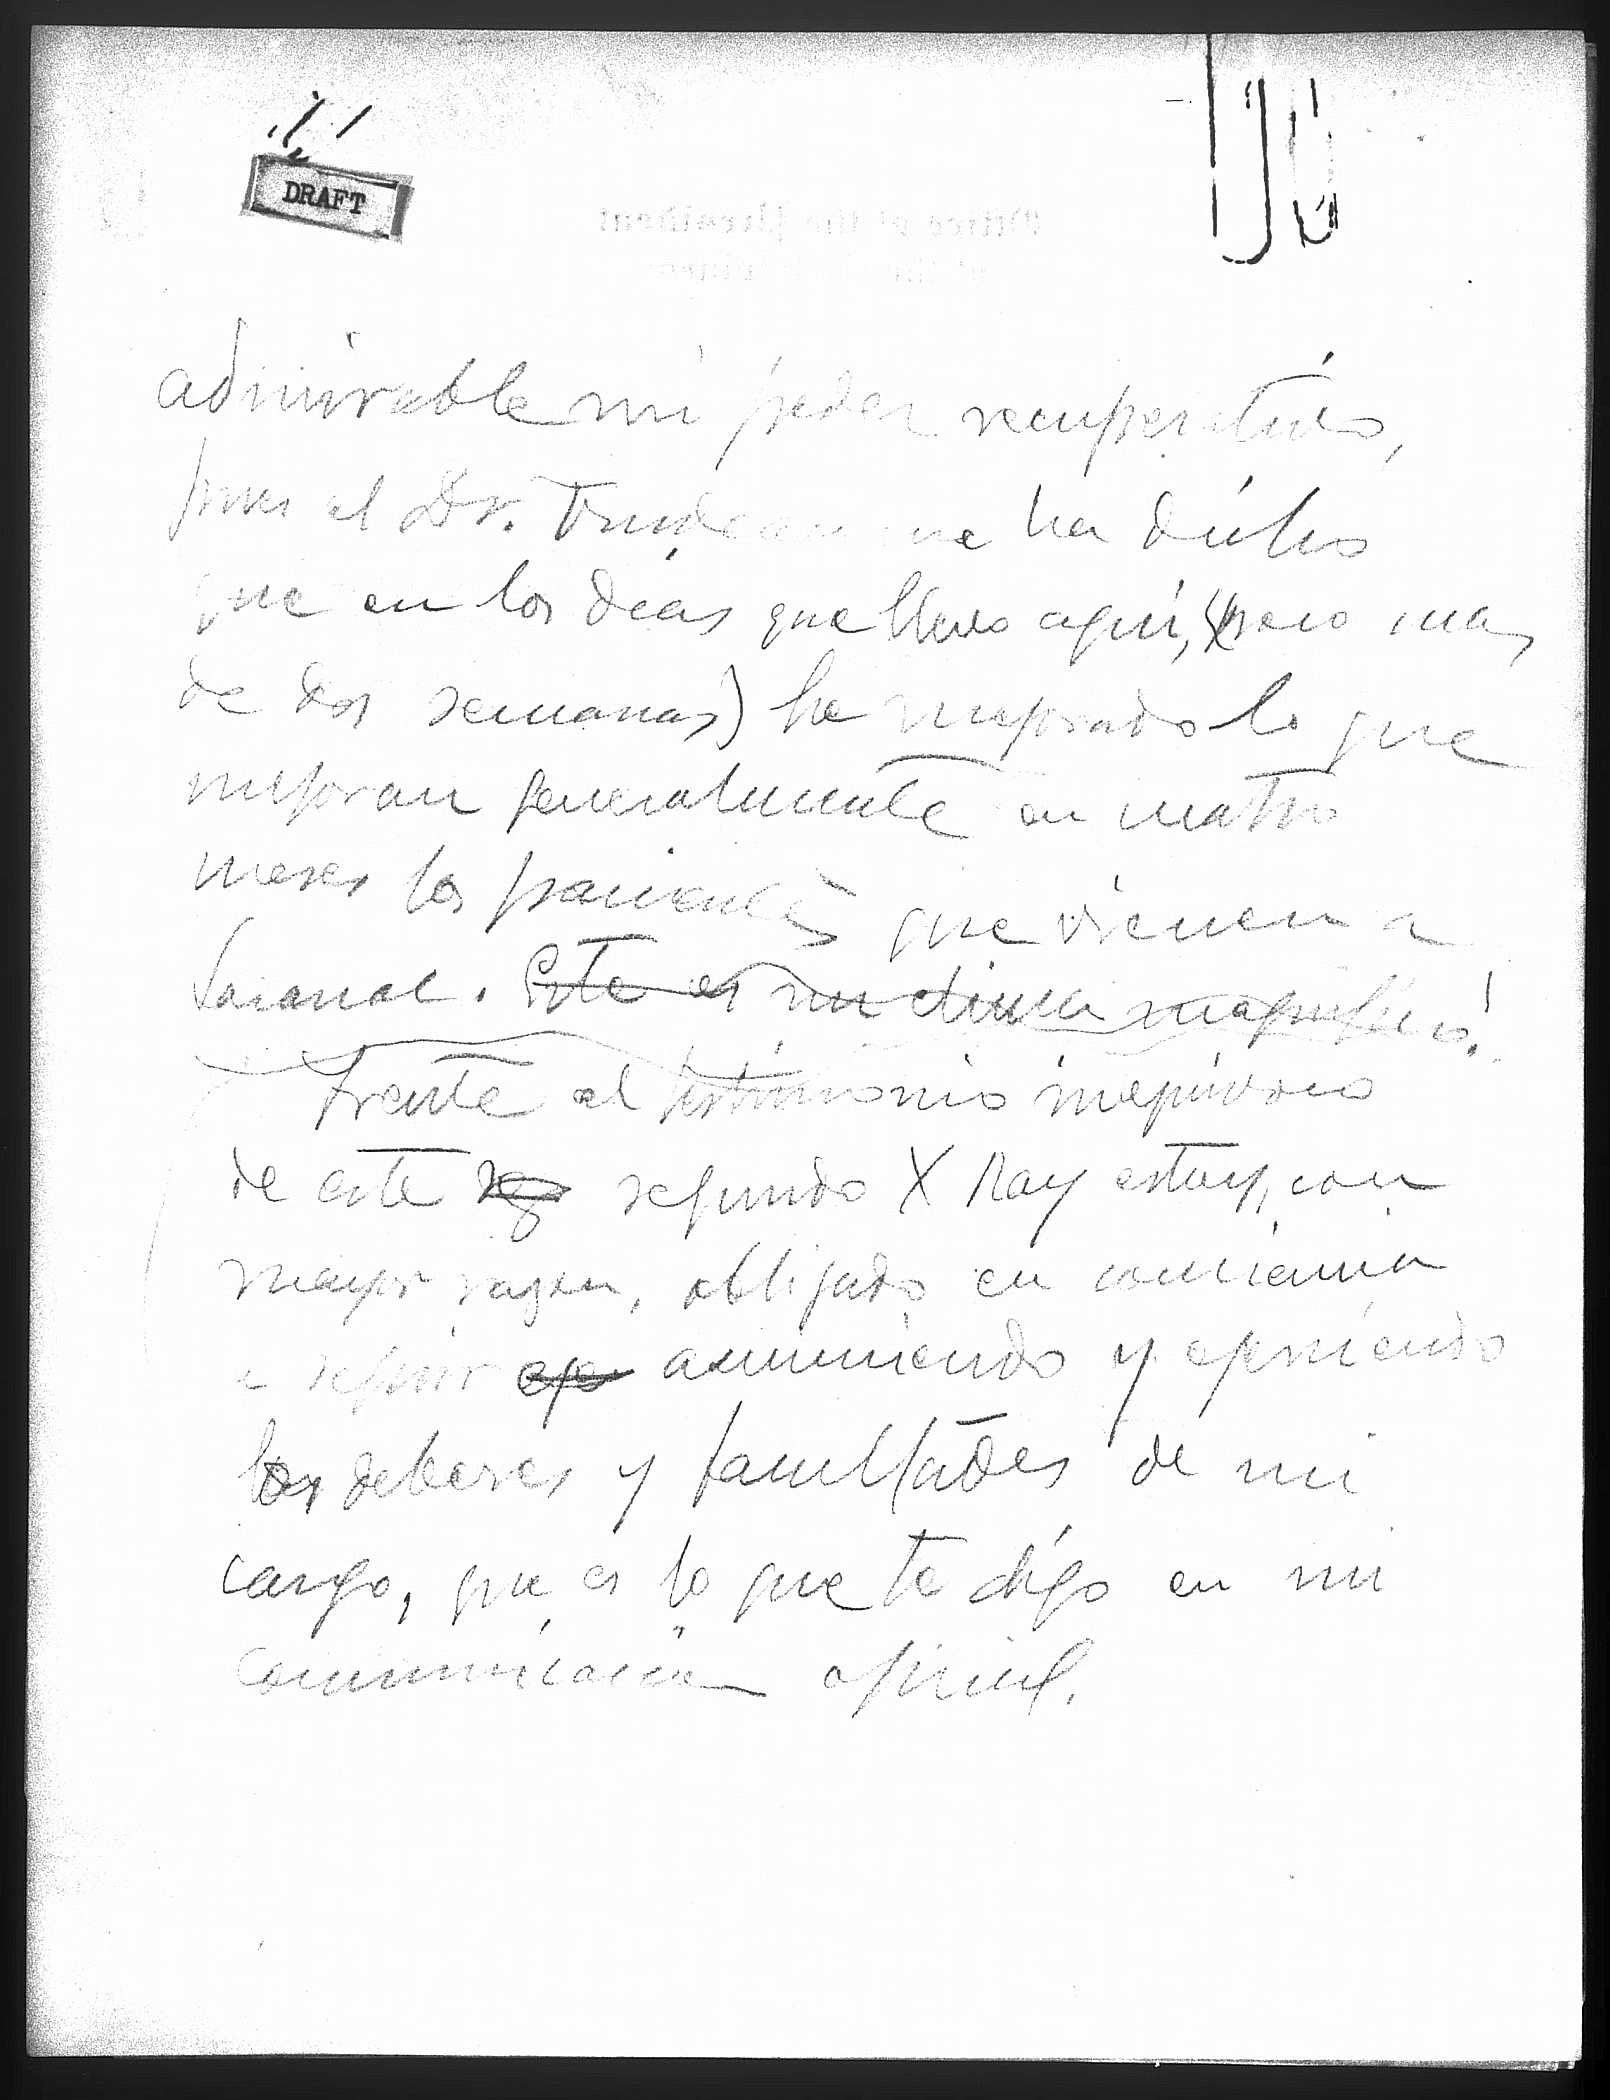 DRAFT
admirable mi poder recuperativo,
pues el Dr. Trudeau me ha dicho
que en los dias que llevo aquí, (poco mas
de dos semanas) he mejorado lo que
mejoran generalmente en cuatro
meses los pacientes que vienen a
Saranac. Este es un clima magnífico!
Frente al testimonio inequívoco
de este segundo X Ray estoy, con
mayor razon, obligado en conciencia
a seguir asumiendo y ejerciendo
los deberes y facultades de mi
cargo, que es lo que te digo en mi
comunicación oficial.